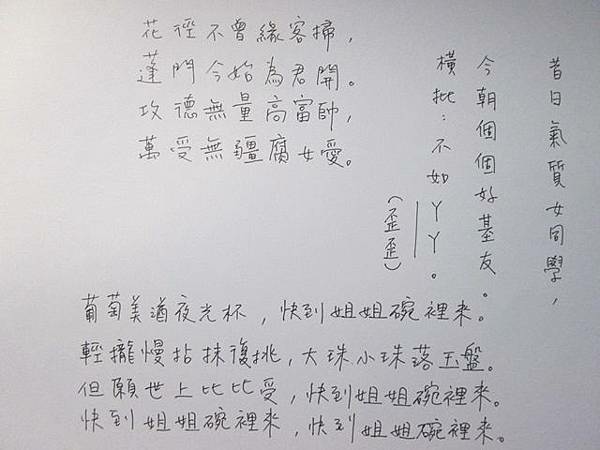 花徑不曾緣客掃，
蓬門今始為君開。
攻德無量高富帥，
萬受無疆腐女愛。
昔日氣質女同學，
今朝個個好基友。
橫批：不如丫丫。
（歪歪）
葡萄美酒夜光杯，快到姐姐碗裡來。
輕攏慢拈抹復挑，大珠小珠落玉盤。
但願世上比比受，快到姐姐碗裡來。
快到姐姐碗裡來，快到姐姐碗裡來。